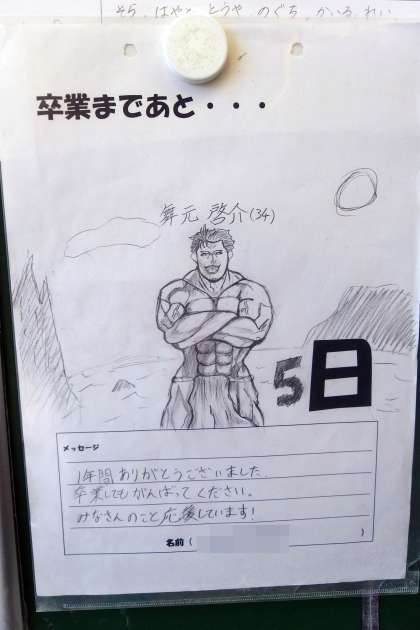 そら、はやと、とうや、のぐち、かいる、れい
卒業まであと・・・
舞元 啓介(34)
5日
メッセージ
1年間ありがとうございました。
卒業してもがんばってください。
みなさんのこと応援しています!
名前( )